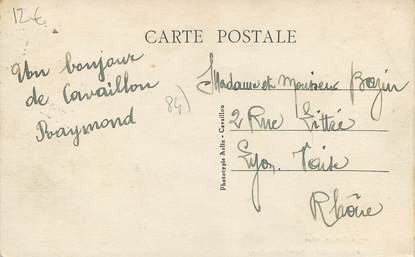 12€
CARTE POSTALE
Un bonjour
de Cavaillon
Raymond
84)
Madame et Monsieur Bazin
2 Rue Littré
Lyon. Vaise
Rhône
Phototypie Arlix - Cavaillon